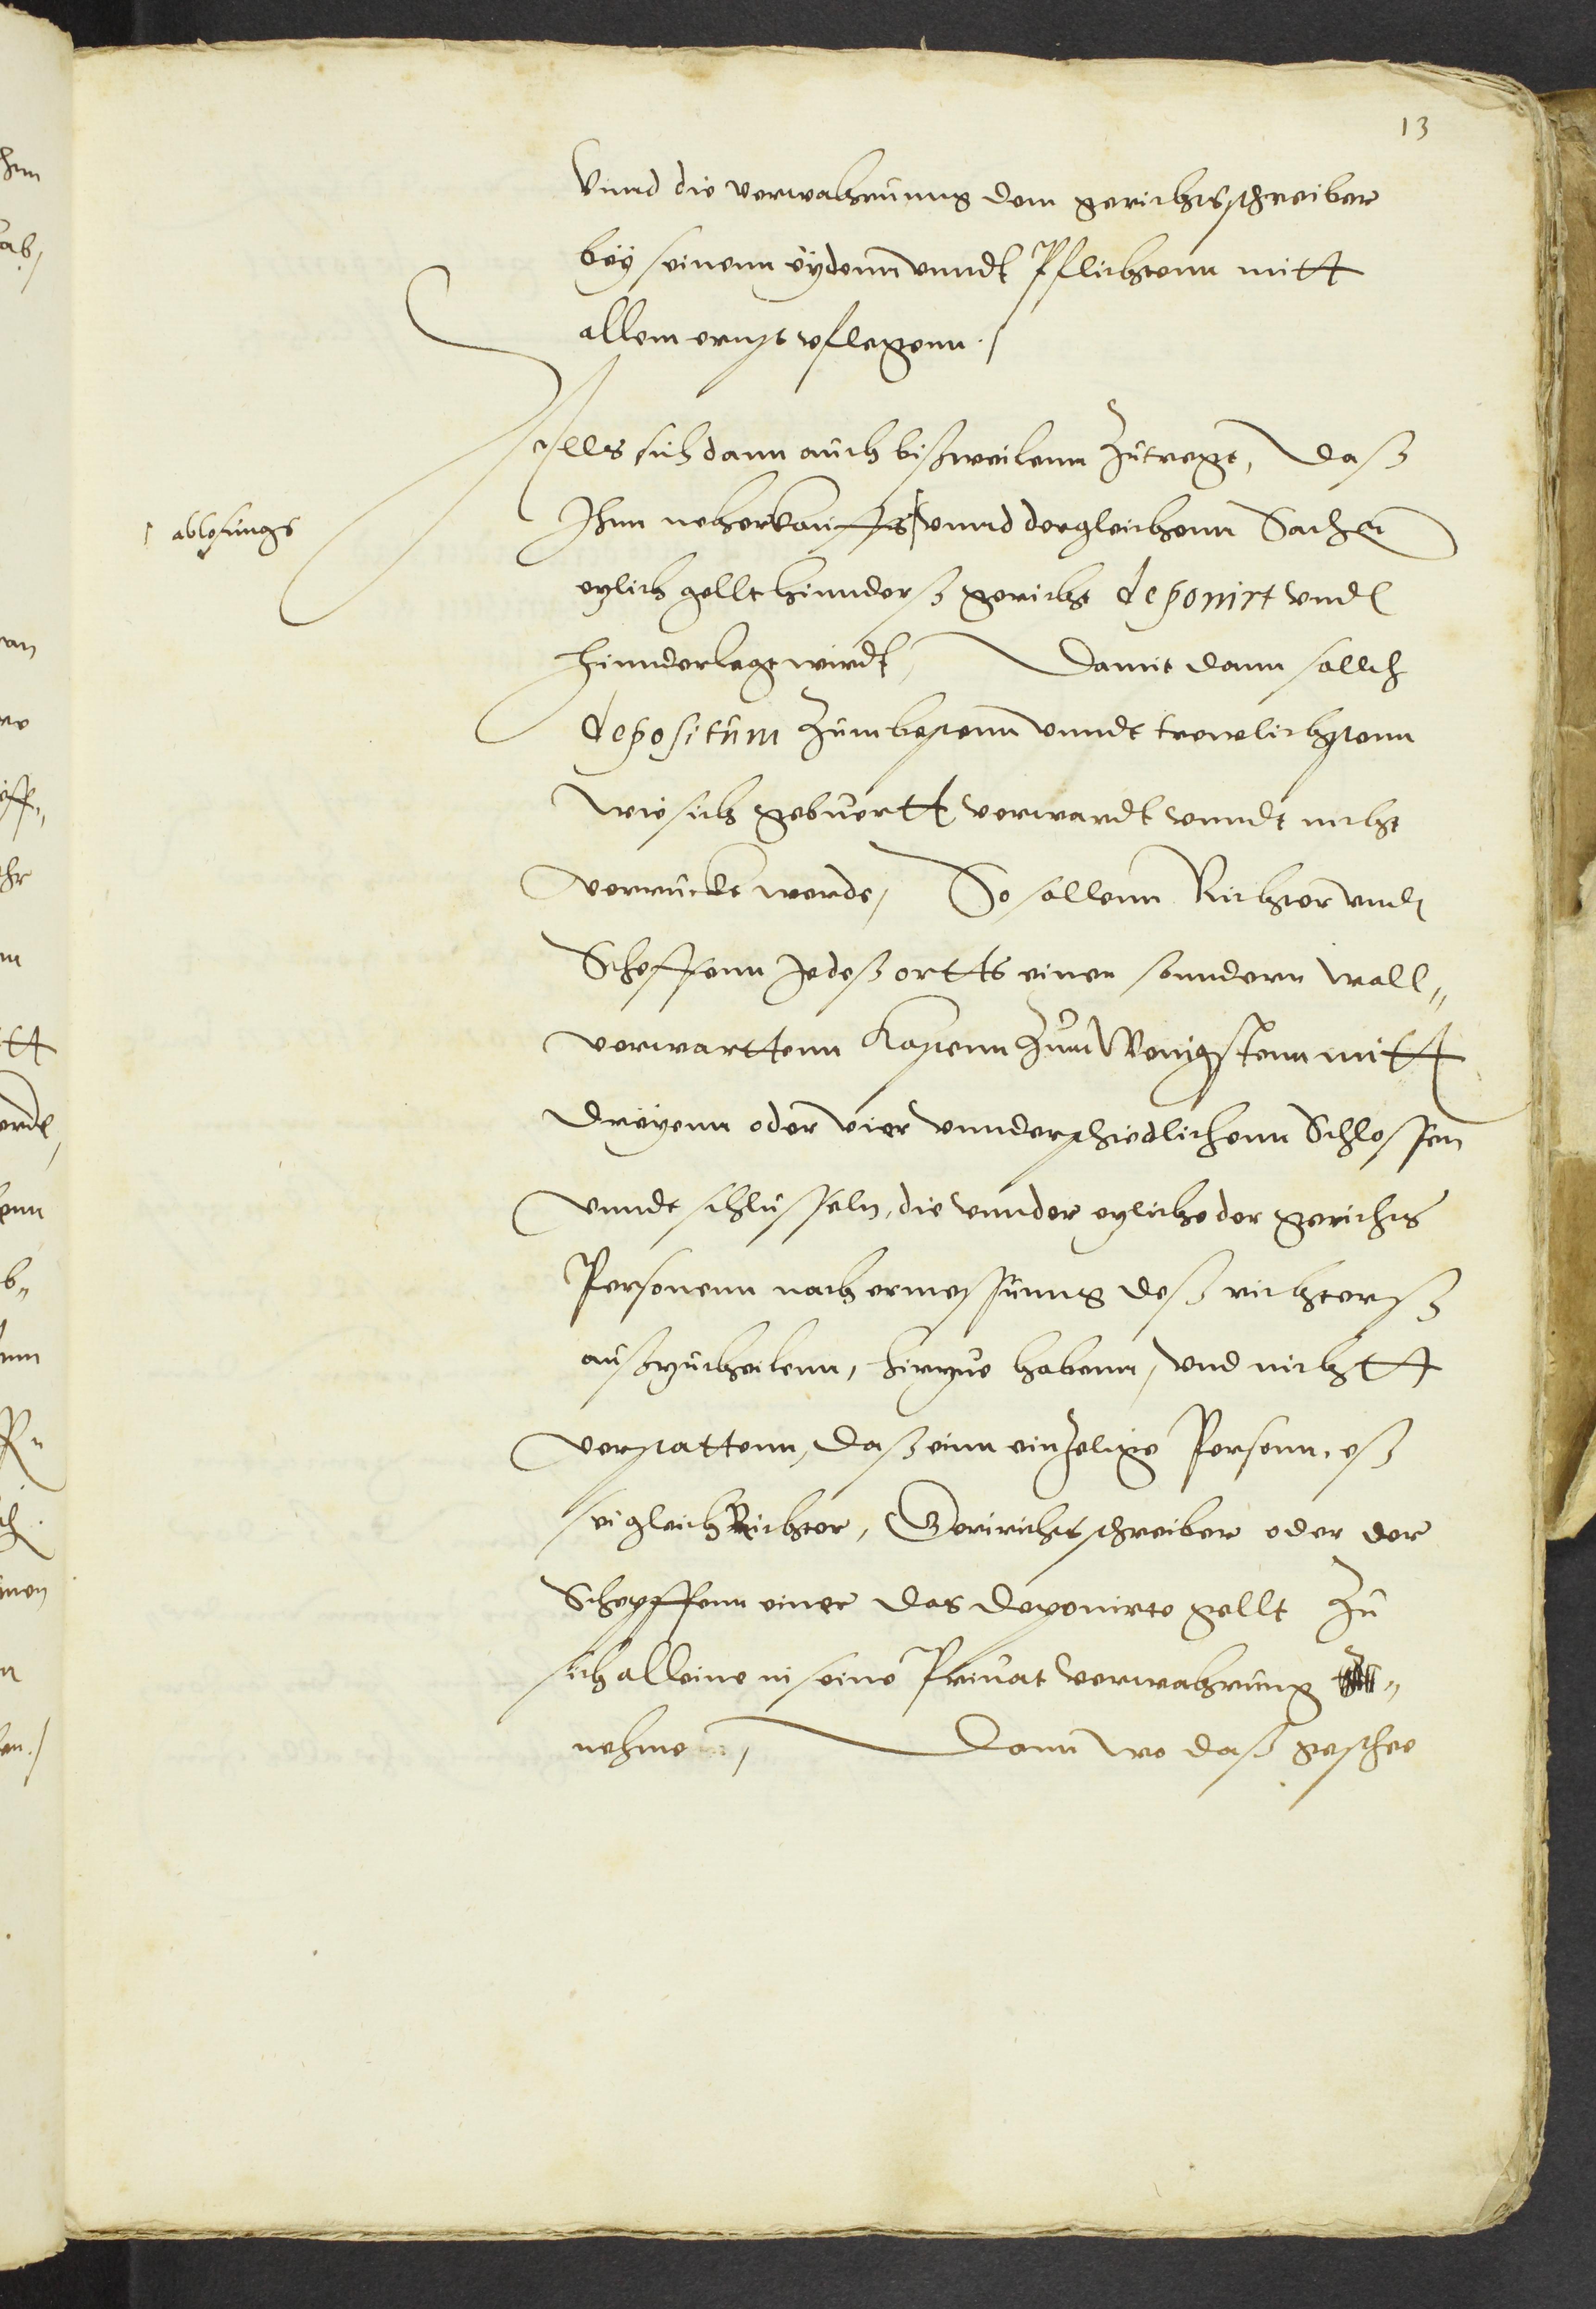 13
Vnnd die verwahrunng dem gerichtsschreiber
bey seinenn eydenn vnndt Pflichtenn mitt
allem ernst vflegenn ./
Alls sich dann auch bißweilenn zutregt, daß
Ihnn neherkauffs vnnd dergleichenn Sachen
/ ablosungs
etzlich gellt hinnderß gericht deponirt vnndt
hinnderlegt wirdt, Damit dann sollch
depositum zum bestenn vnndt trewlichstenn
wie sich geburtt verwardt vnndt nicht
verruckt werde, So sollenn Richter vndt
Scheffenn Jedeß ortts einen sonndern woll„
verwarttenn Kastenn zum Wenigstenn mitt
dreyenn oder vier vnnderschiedlichenn Schlossen
vnndt schlusseln, die vnnder etzliche der gerichts
Personenn nach ermessunng deß richterß
außzutheilenn, hirzue habenn, vnd nichtt
verstattenn, daß einn einzelige Personn, eß
sei gleich Richter, Geririchtschreiber oder der
Schepffenn einer das deponirte gellt zu
sich alleine in seine Priuat verwahrung „
nehme, Dann wo daß geschee